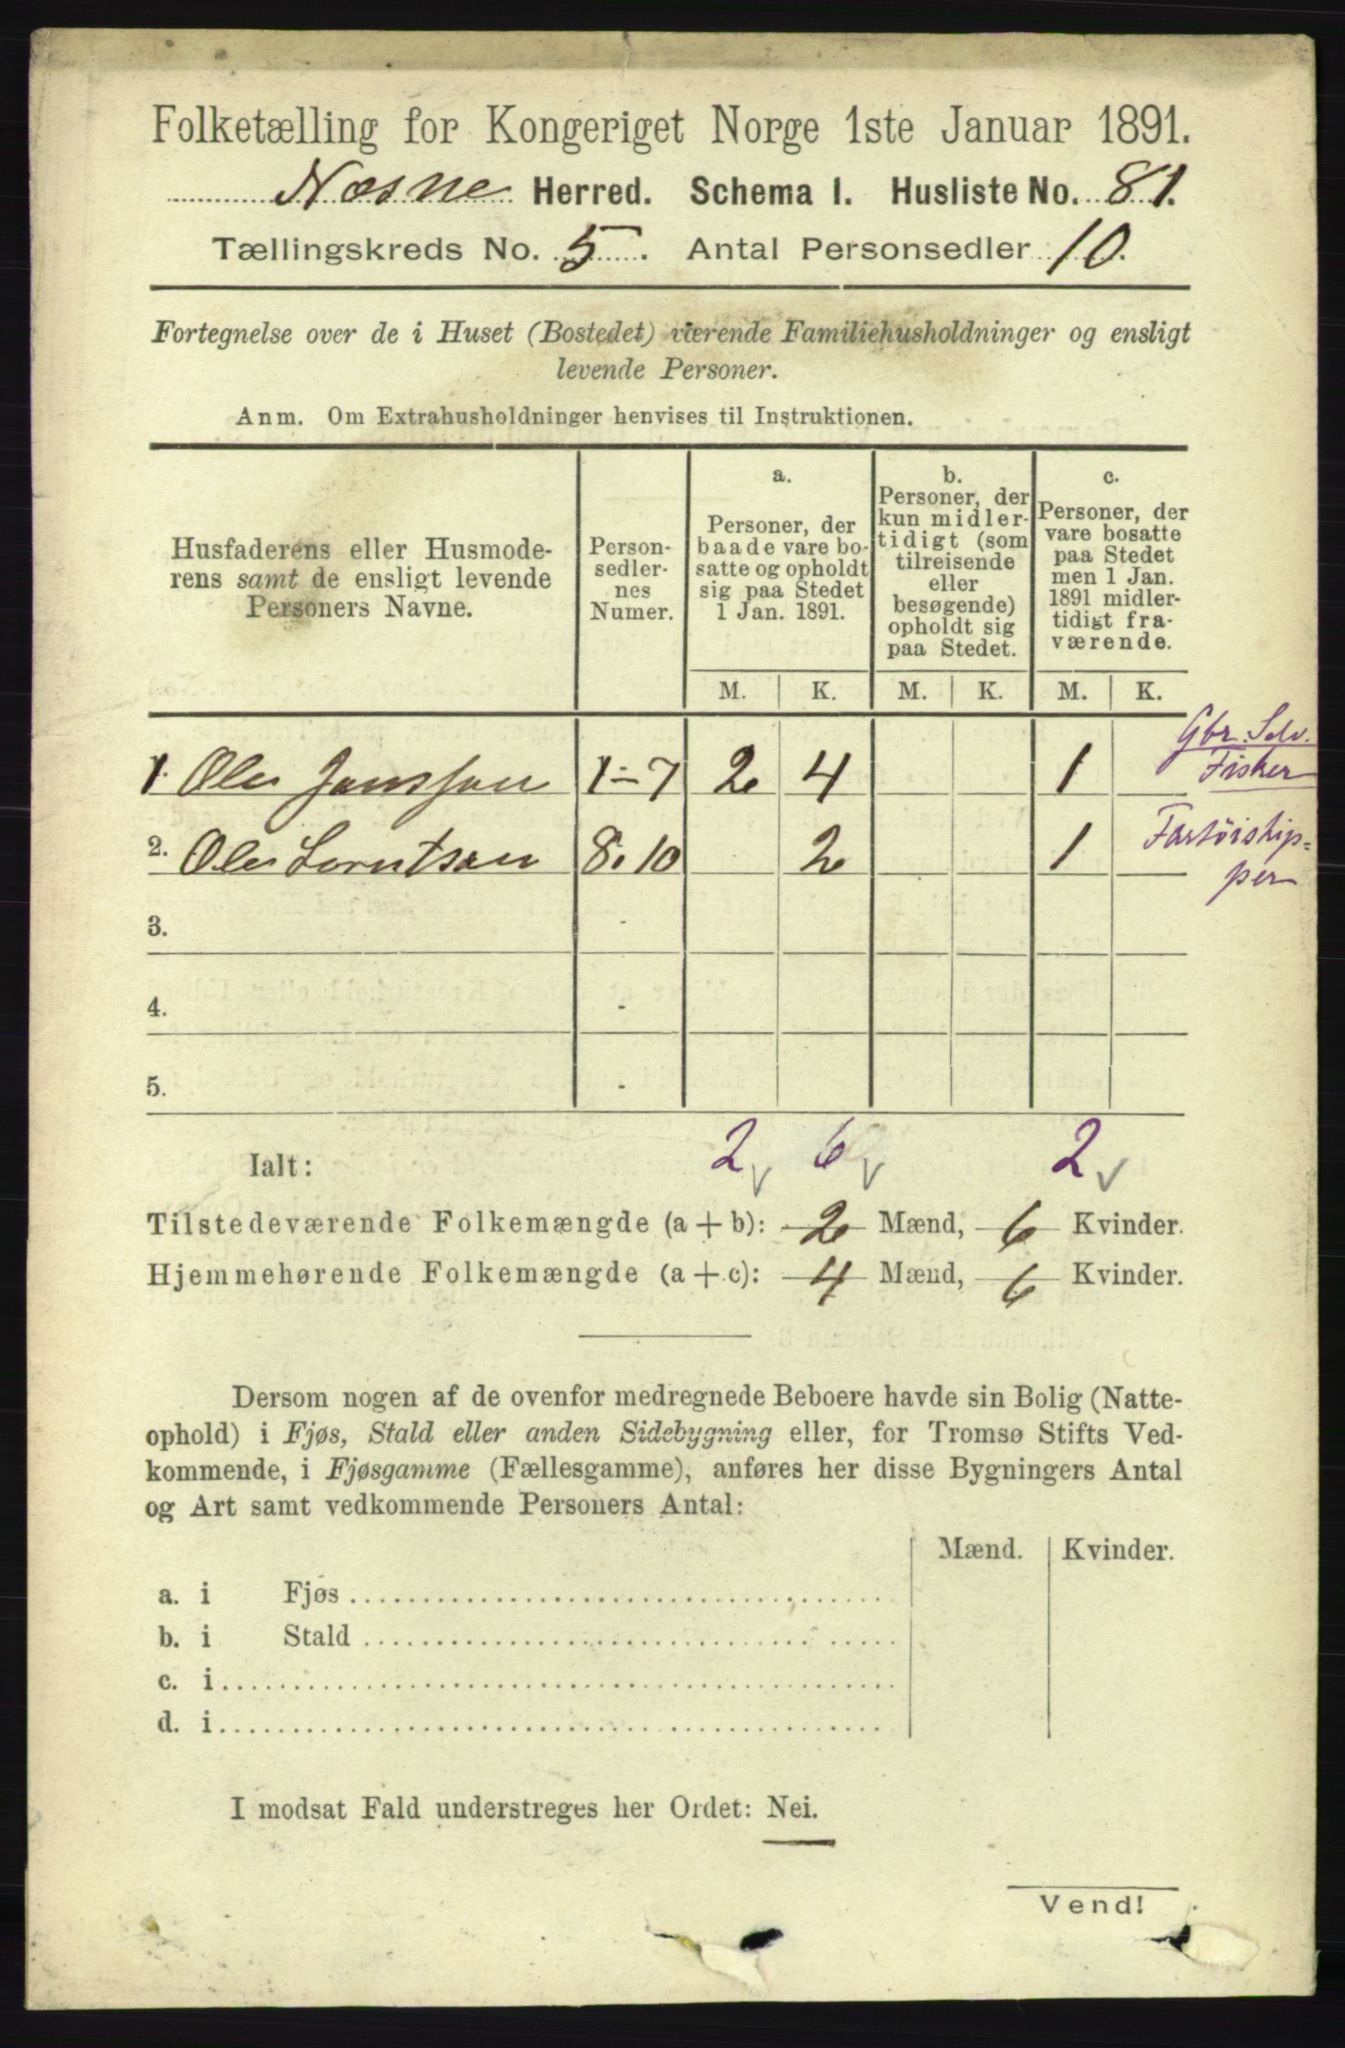 Folketælling for Kongeriget Norge 1ste Januar 1891.
Næsne Herred. Schema 1. Husliste No. 81.
Tællingskreds No. 5. Antal Personsedler 10.
Fortegnelse over de i Huset (Bostedet) værende Familiehusholdninger og ensligt
levende Personer.
Anm. Om Extrahusholdninger henvises til Instruktionen.
Husfaderens eller Husmode-
rens samt de ensligt levende
Personers Navne.
Person-
sedler-
nes
Numer.
a.
Personer, der
baade vare bo-
satte og opholdt
sig paa Stedet
1 Jan. 1891.
b.
Personer, der
kun midler-
tidigt (som
tilreisende
eller
besøgende)
opholdt sig
paa Stedet.
c.
Personer, der
vare bosatte
paa Stedet
men 1 Jan.
1891 midler-
tidigt fra-
værende.
M. K. M. K. M. K.
1. Ole Jonsson 1-7 2 4 1 Gbr. Selv.
Fisker
2. Ole Lorntsen 8.10 2 1 Fartøiskip-
per
3. -
4. -
5. -
Ialt: 2 6 2
Tilstedeværende Folkemængde (a + b): 2 Mænd, 6 Kvinder.
Hjemmehørende Folkemængde (a + c): 4 Mænd, 6 Kvinder.
Dersom nogen af de ovenfor medregnede Beboere havde sin Bolig (Natte-
ophold) i Fjøs, Stald eller anden Sidebygning eller, for Tromsø Stifts Ved-
kommende, i Fjøsgamme (Fællesgamme), anføres her disse Bygningers Antal
og Art samt vedkommende Personers Antal:
Mænd. Kvinder.
a. i Fjøs
b. i Stald
c. i
d. i
I modsat Fald understreges her Ordet: Nei.
Vend!